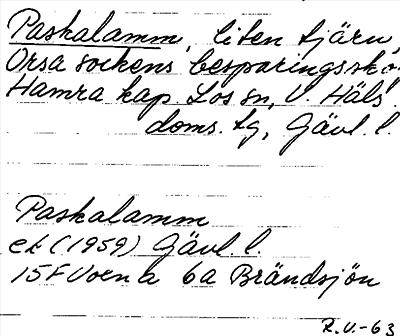 Paskalamm, liten tjärn,
Orsa sockens besparingssko.
Hamra kap. Los sn, V. Häls.
doms. tg, Gävl. l.
Paskalamm
ek (1959) Gävl. l.
15F Voxna 6a Brändsjön
R.V.-63